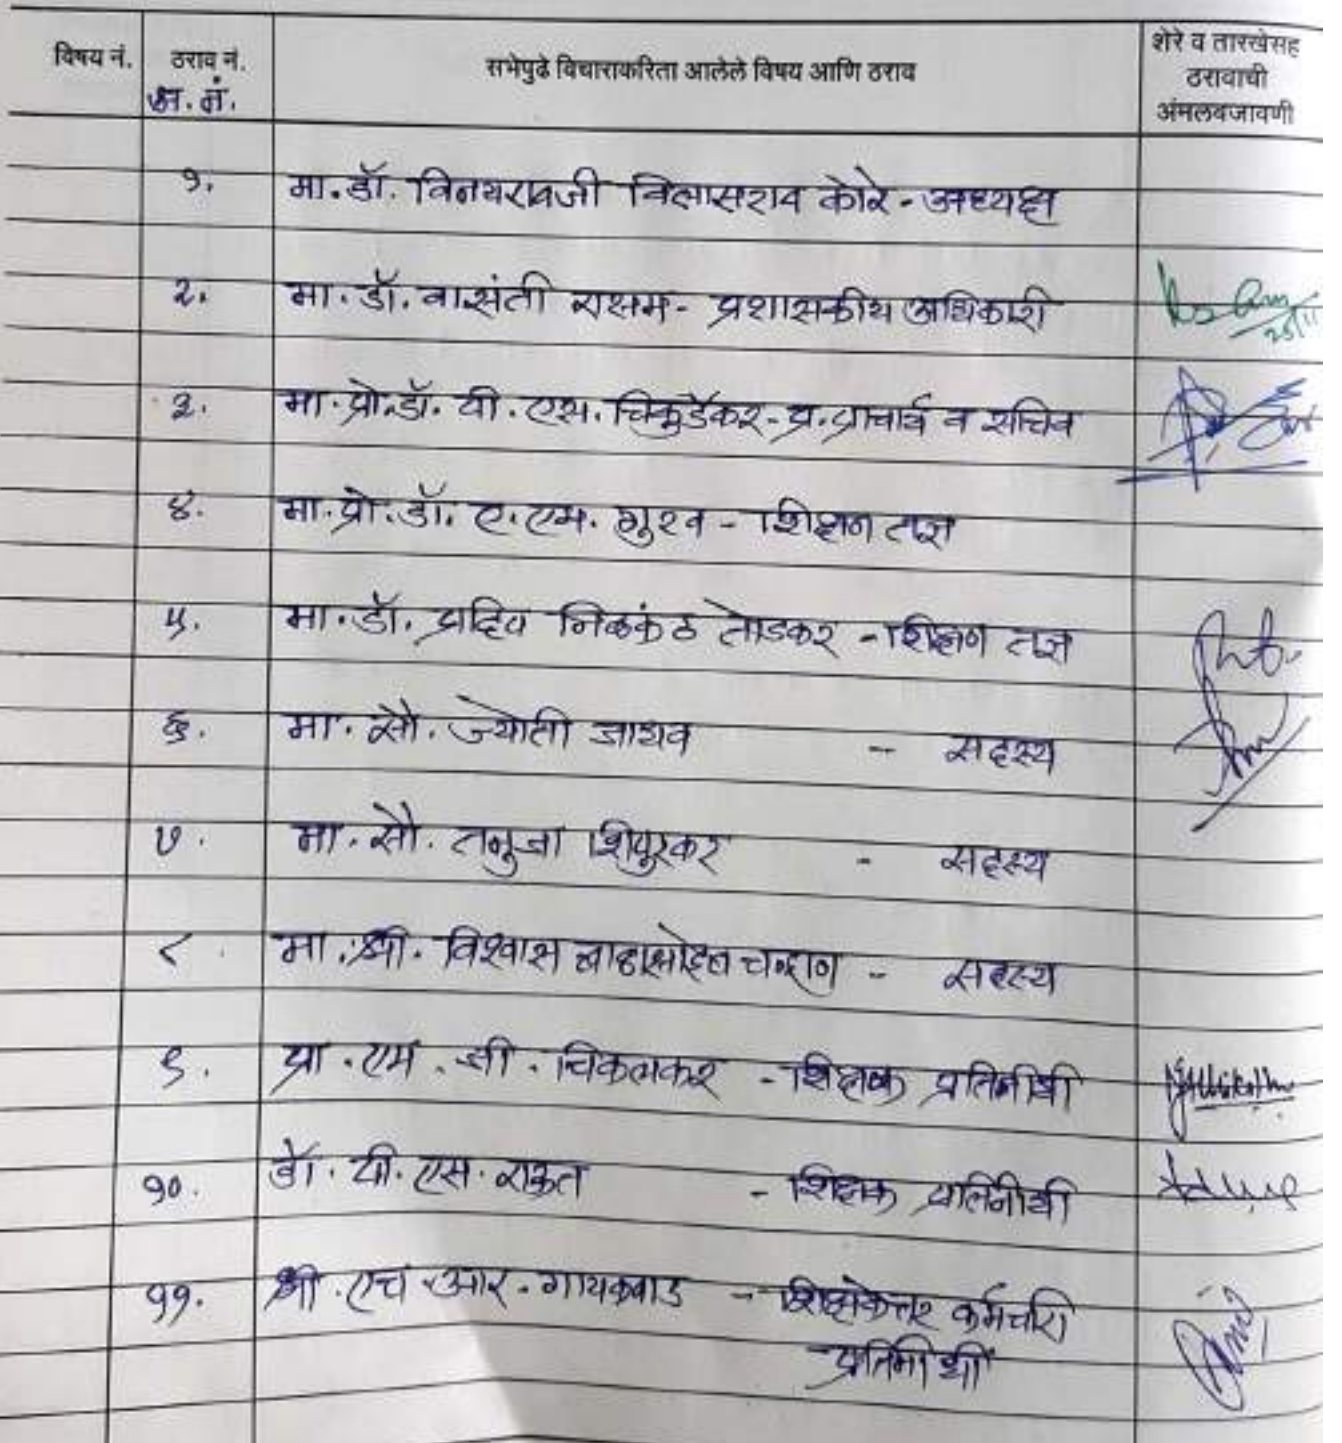 विषय नं. ठराव नं. सभेपुढे विचाराकरिता आलेले विषय आणि ठराव शेरे व तारखेसह ठरावाची अंमलबजावणी
अ. नं.
१. मा. डॉ. विनयरावजी विलासराव कोरे - अध्यक्ष
२. मा. डॉ. वासंती रासम - प्रशासकीय अधिकारी
३. मा. प्रो. डॉ. वी. एस. चिकुर्डेकर - प्र. प्राचार्य व सचिव
४. मा. प्रो. डॉ. ए. एम. गुरव - शिक्षण तज्ञ
५. मा. डॉ. प्रदिप निळकंठ तोडकर - शिक्षण तज्ञ
६. मा. सौ. ज्योती जाधव - सदस्य
७. मा. सौ. तनुजा शिपुरकर - सदस्य
८. मा. श्री. विश्वास बाबासोहेब चव्हाण - सदस्य
९. प्रा. एम. जी. चिकलकर - शिक्षक प्रतिनीधी
१०. डॉ. पी. एस. राऊत - शिक्षक प्रतिनीधी
११. श्री. एच. आर. गायकवाड - शिक्षकेत्तर कर्मचारी
प्रतिनीधी